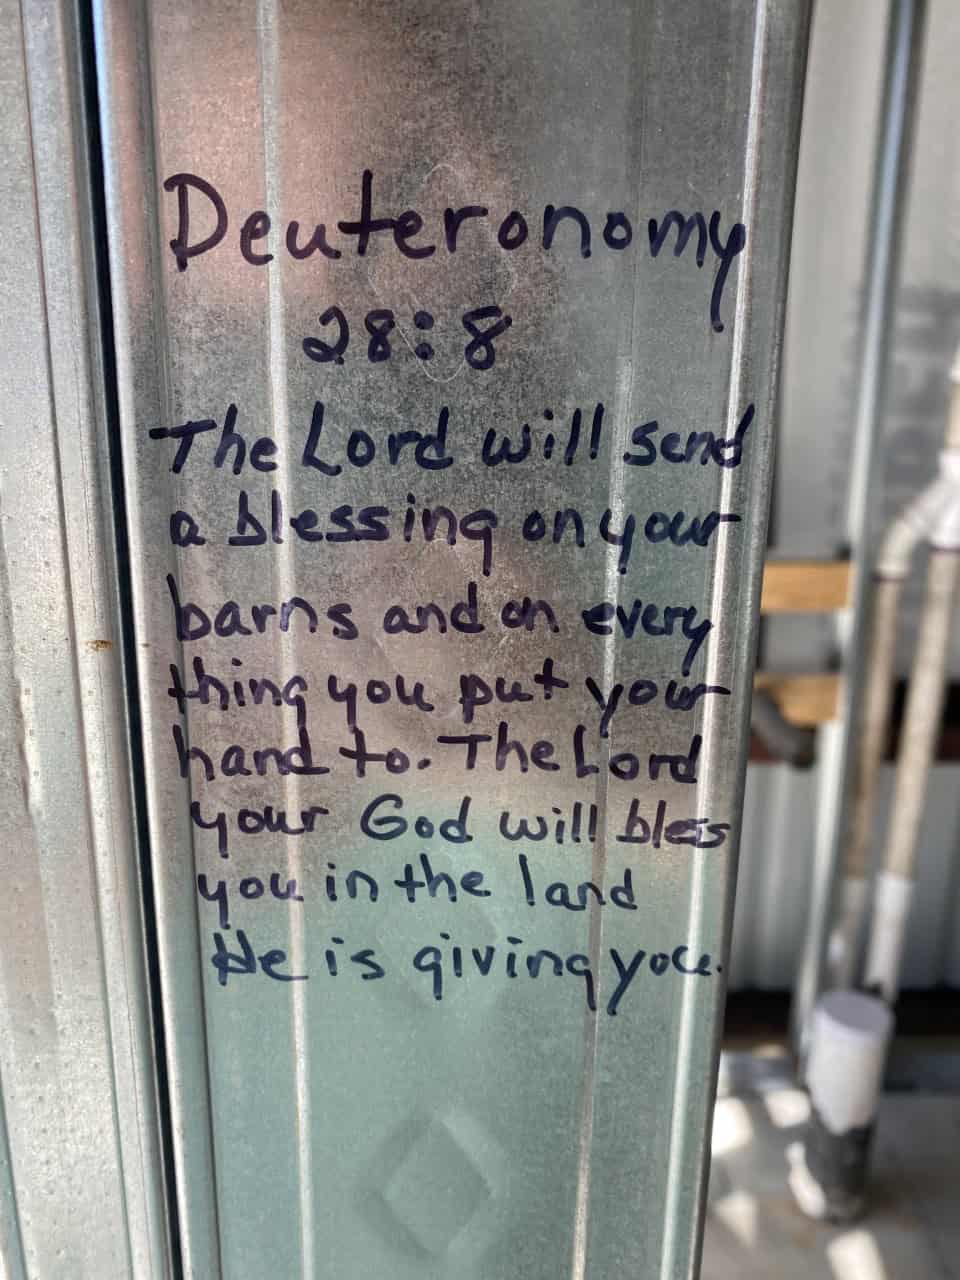 Deuteronomy
28:8
The Lord will send
a blessing on your
barns and on every
thing you put your
hand to. The Lord
your God will bless
you in the land
He is giving you.